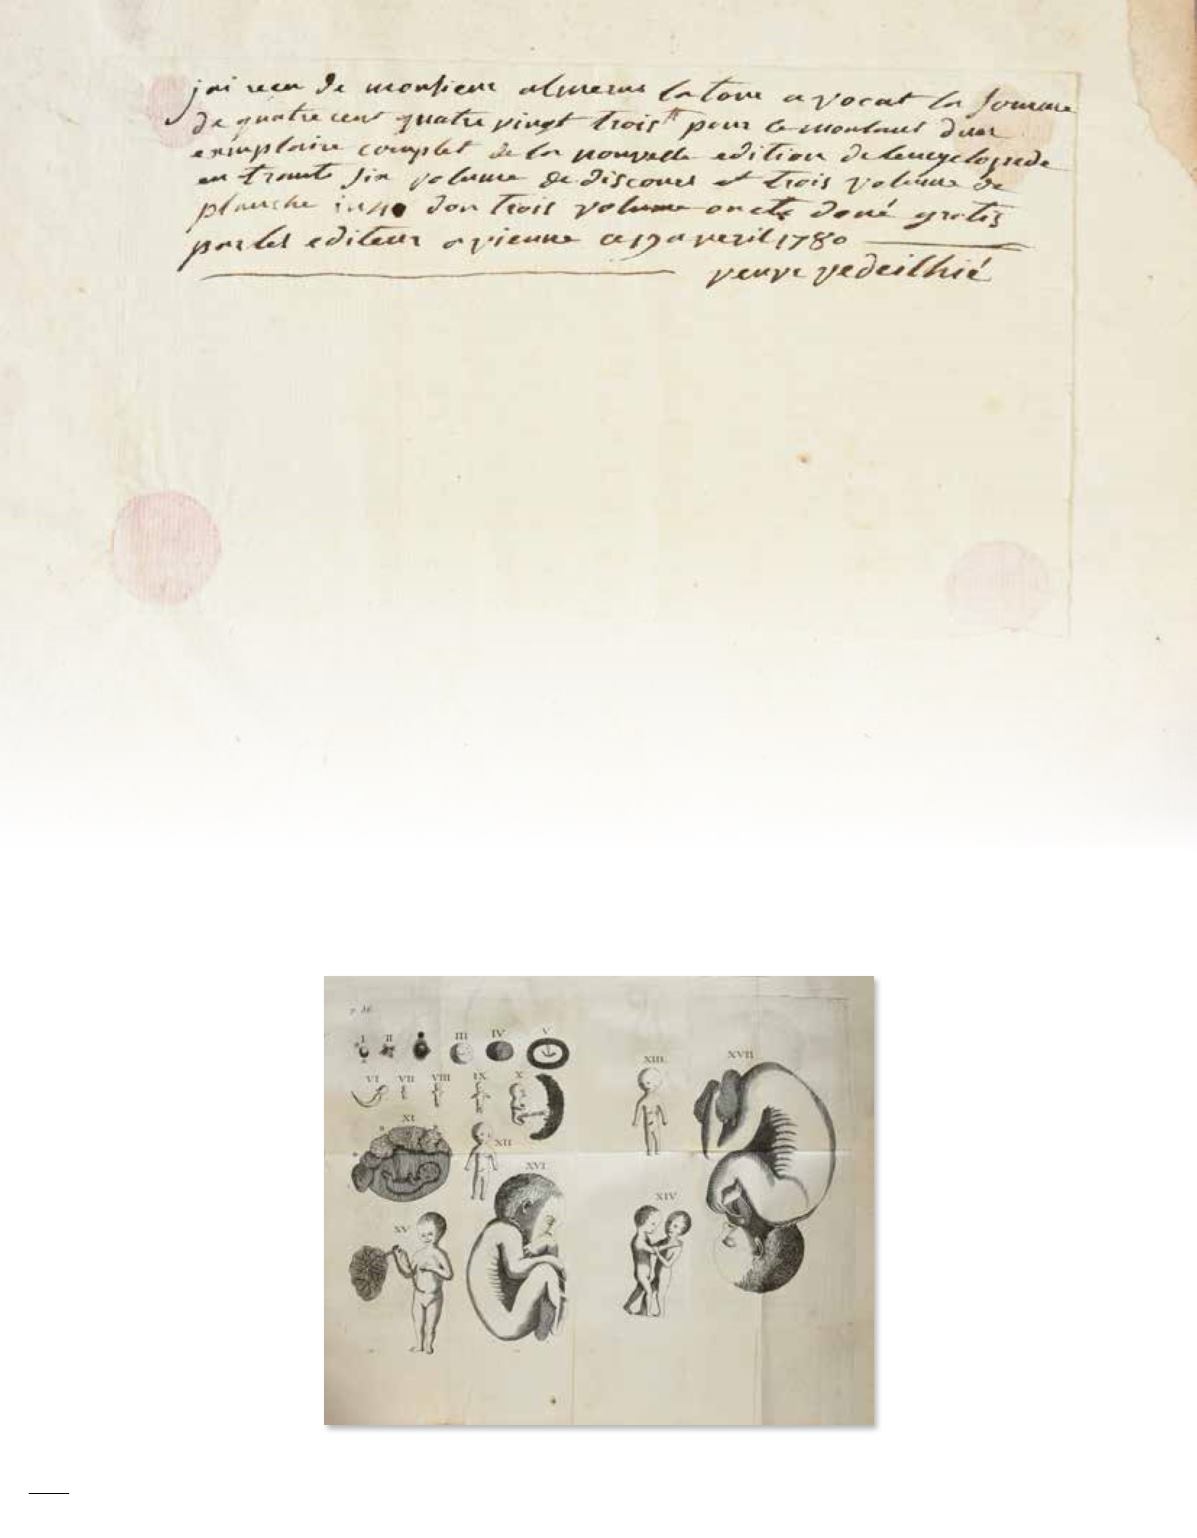 jai recu de monsieur almeras latour avocat la somme
de quatre cent quatre vingt trois ₶ pour le montant dun
exemplaire complet de la nouvelle edition de lencyclopede
en trante six volume de discours et trois volume de
planche in 4o don trois volume on ete doné gratis
par les editeur a vienne ce 19 avril 1780
veuve vedeilhié
p. 36.
I II III IV V
VI VII VIII IX X
XI XII
XIII. XVII
XVI
XV XIV